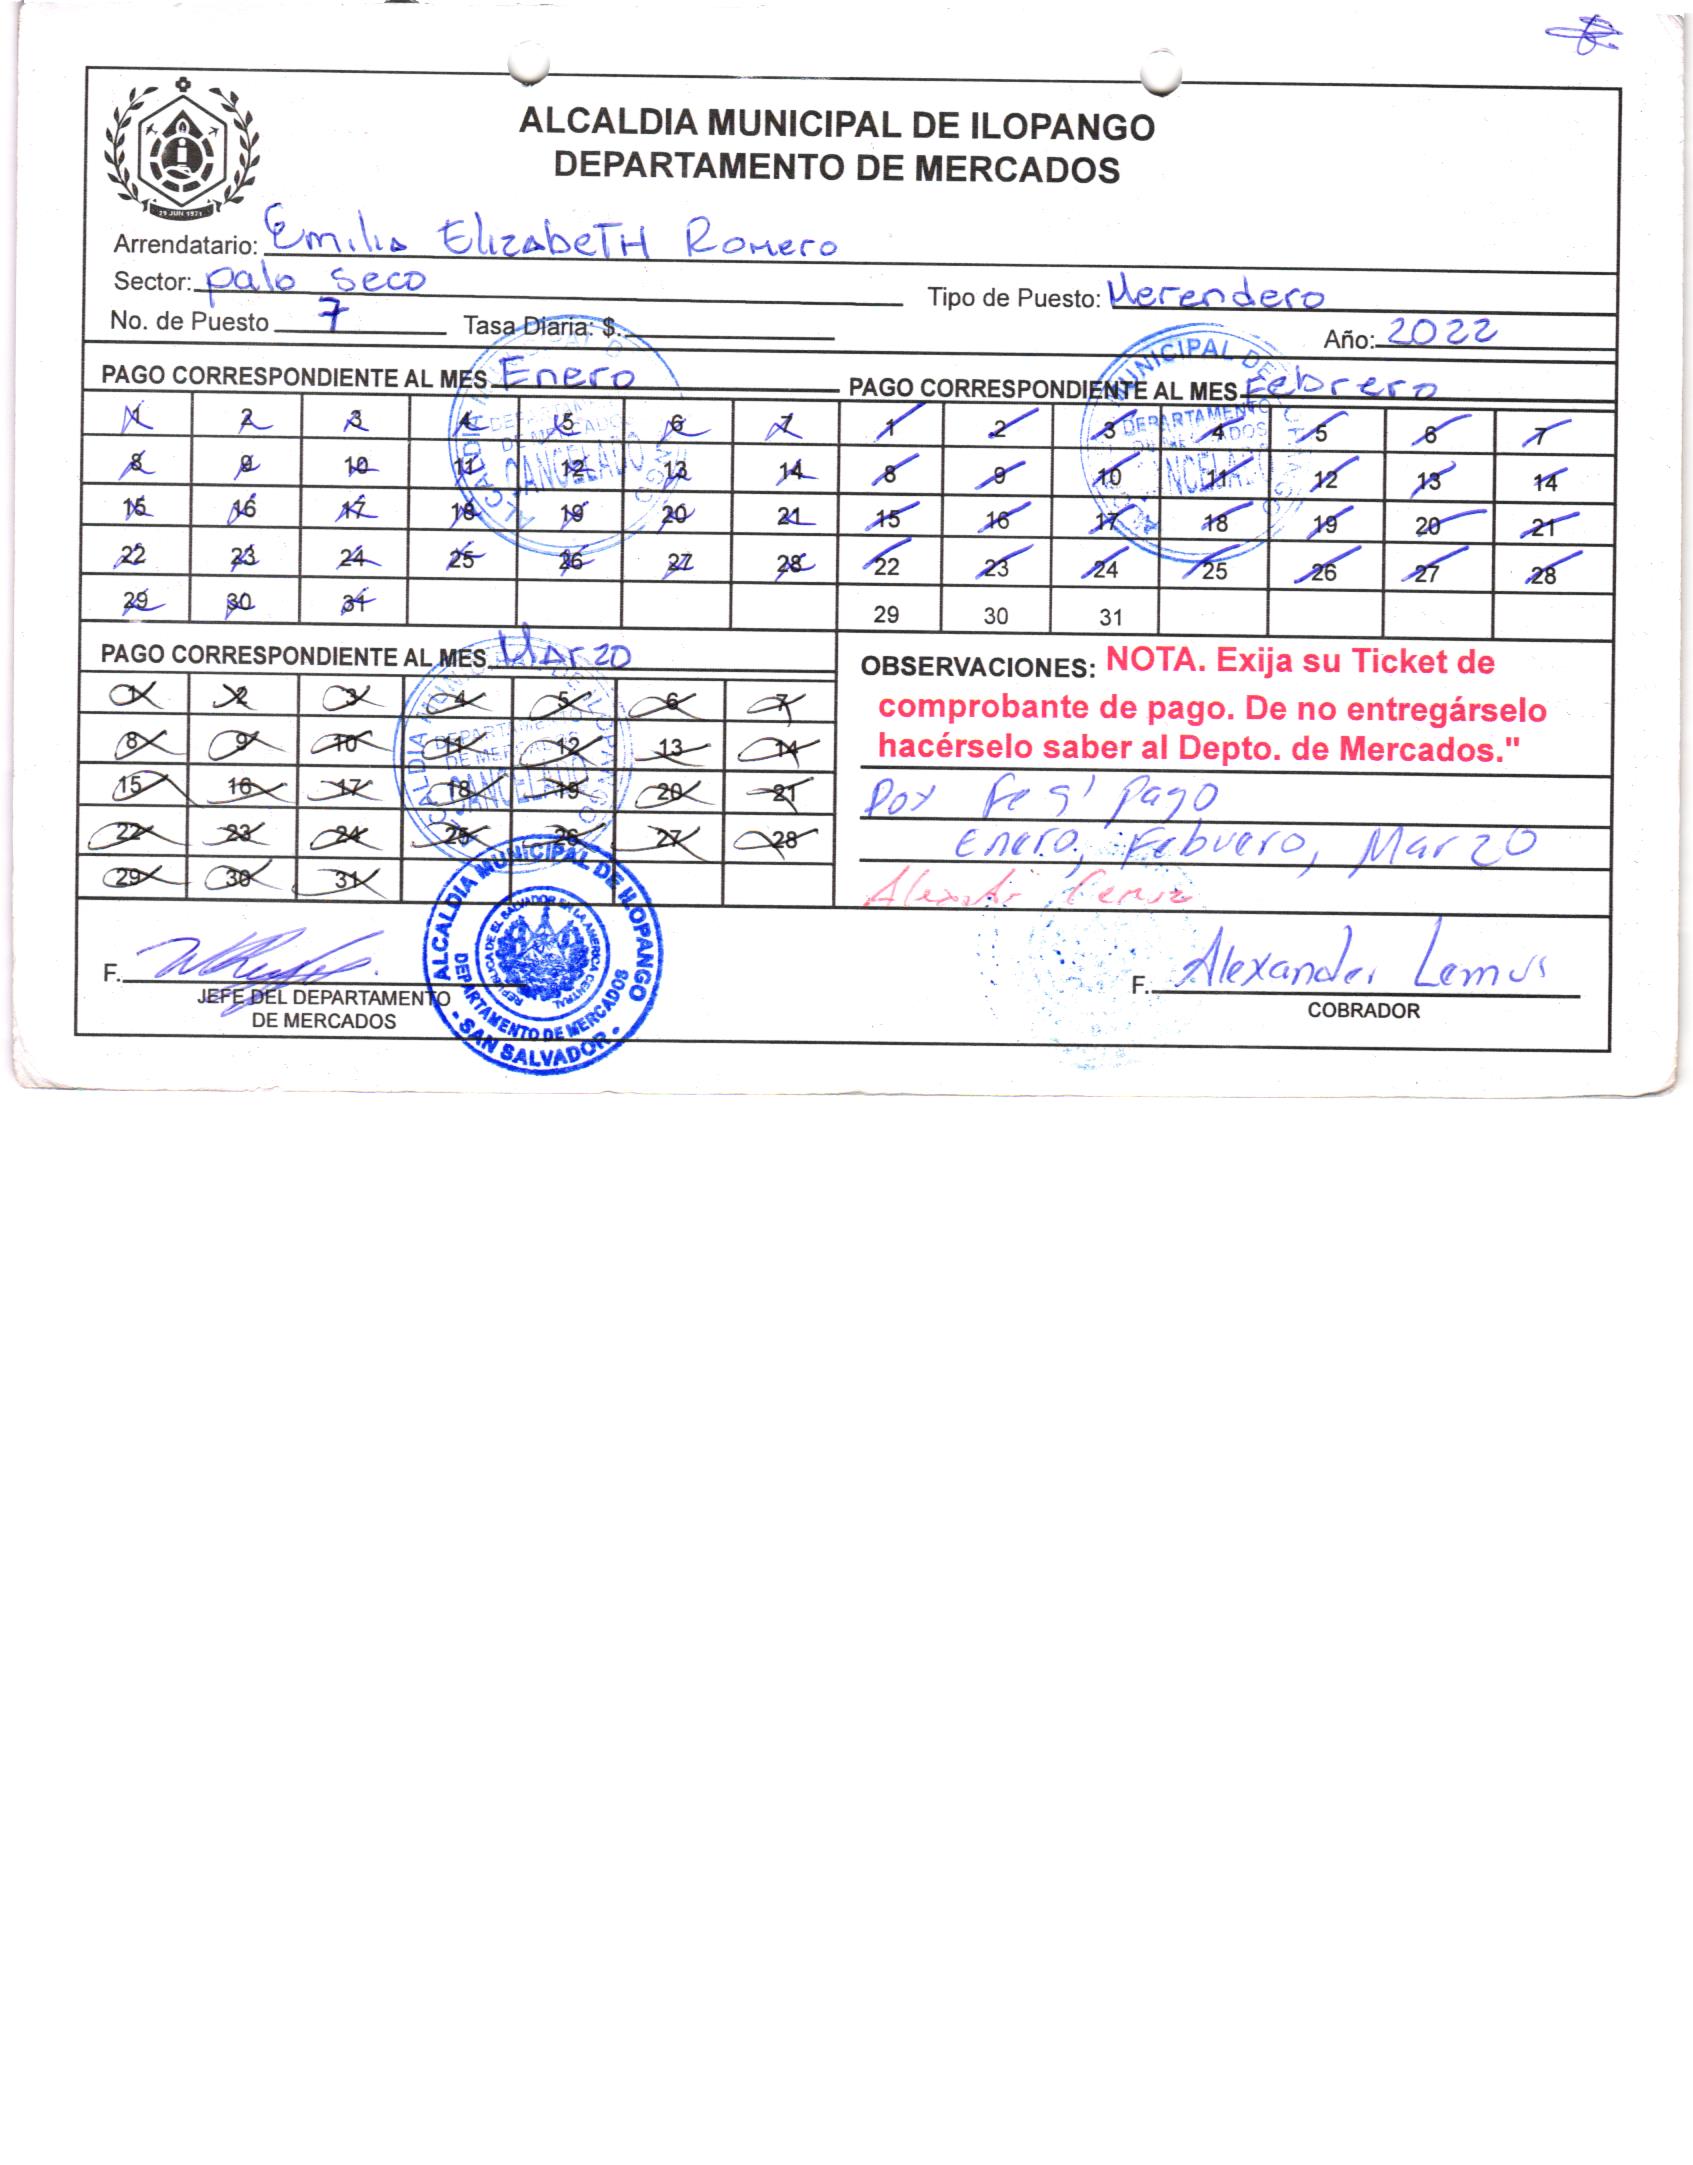 ALCALDIA MUNICIPAL DE ILOPANGO
DEPARTAMENTO DE MERCADOS
29 JUN 1971
Arrendatario: Emilia ElizabeTH Romero
Sector: palo seco Tipo de Puesto: Merendero
No. de Puesto 7 Tasa Diaria: $. Año: 2022
PAGO CORRESPONDIENTE AL MES Enero
1 2 3 4 5 6 7
8 9 10 11 12 13 14
15 16 17 18 19 20 21
22 23 24 25 26 27 28
29 30 31
PAGO CORRESPONDIENTE AL MES Febrero
1 2 3 4 5 6 7
8 9 10 11 12 13 14
15 16 17 18 19 20 21
22 23 24 25 26 27 28
29 30 31
PAGO CORRESPONDIENTE AL MES Marzo
1 2 3 4 5 6 7
8 9 10 11 12 13 14
15 16 17 18 19 20 21
22 23 24 25 26 27 28
29 30 31
OBSERVACIONES: NOTA. Exija su Ticket de
comprobante de pago. De no entregárselo
hacérselo saber al Depto. de Mercados."
Pago
Enero, Febuero, Marzo
F. F. Alexander Lemus
JEFE DEL DEPARTAMENTO
DE MERCADOS
COBRADOR
ALCALDIA MUNICIPAL DE ILOPANGO
DEPARTAMENTO DE MERCADOS
- SAN SALVADOR -
REPUBLICA DE EL SALVADOR EN LA AMERICA CENTRAL
DEPARTAMENTO
DE MERCADOS
CANCELADO